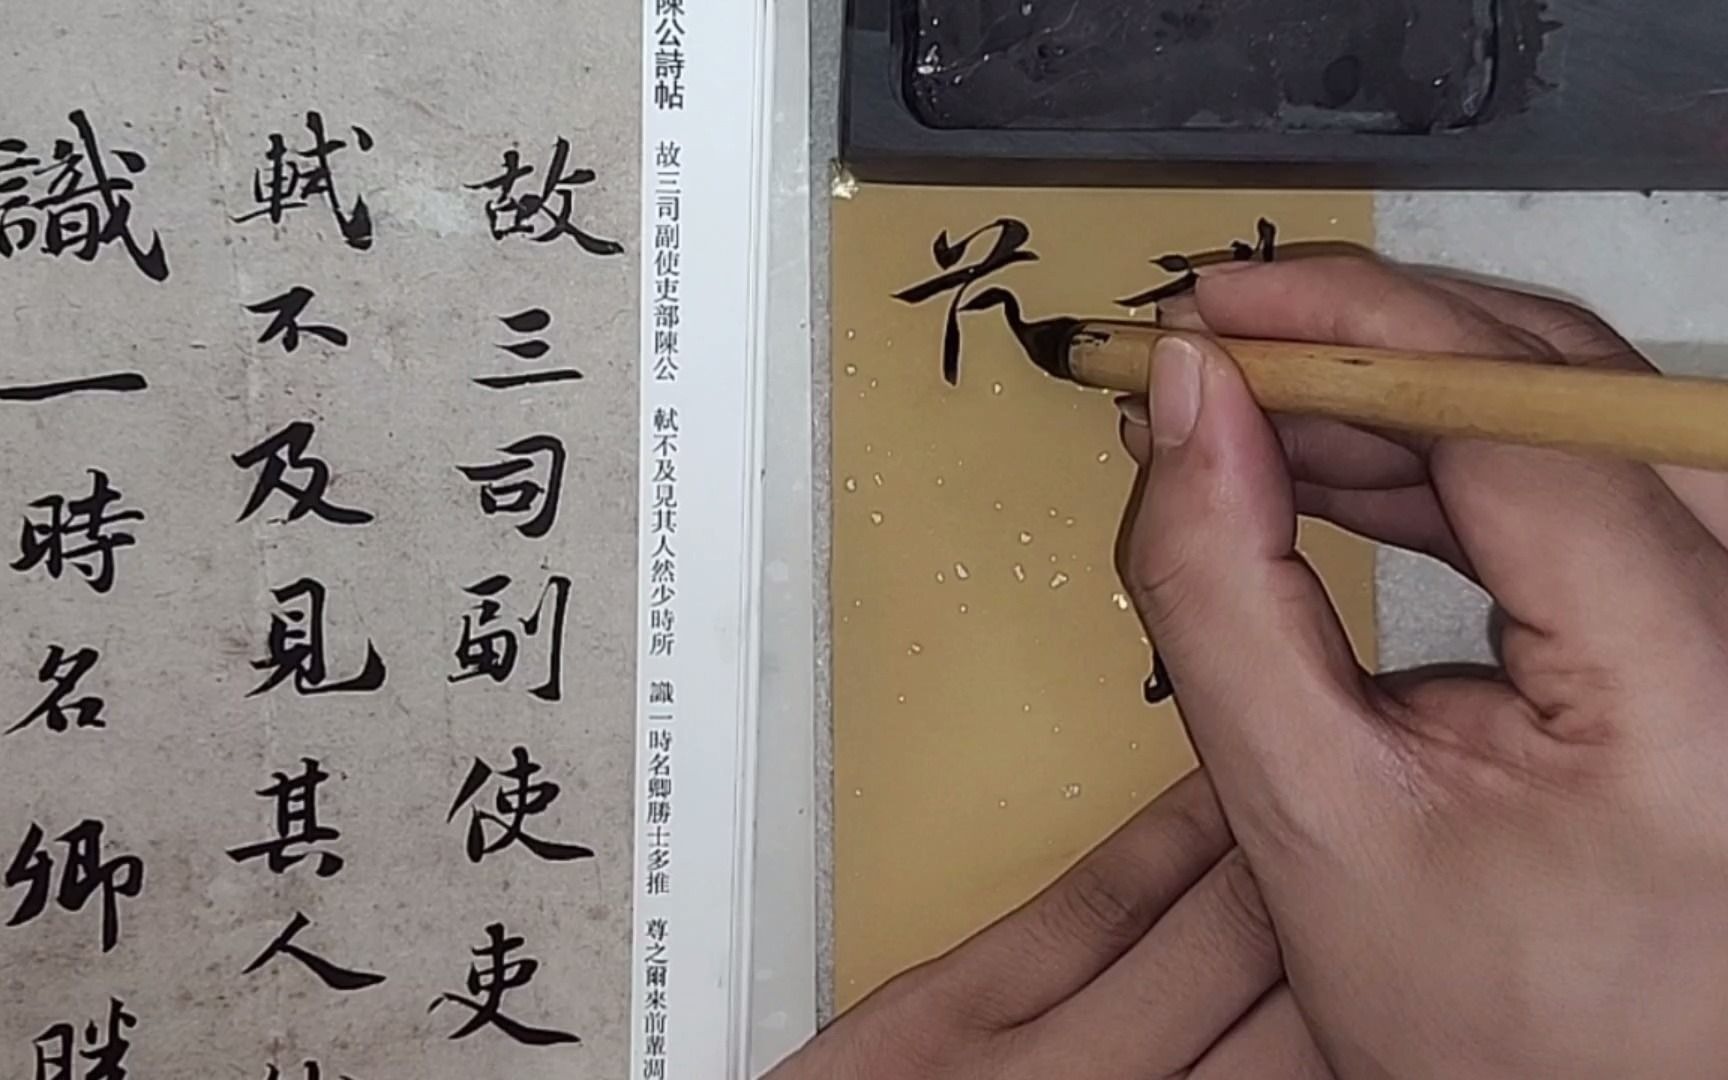 故三司副使吏
軾不及見其人
識一時名卿勝
陳公詩帖 故三司副使吏部陳公 軾不及見其人然少時所 識一時名卿勝士多推 尊之爾來前輩凋